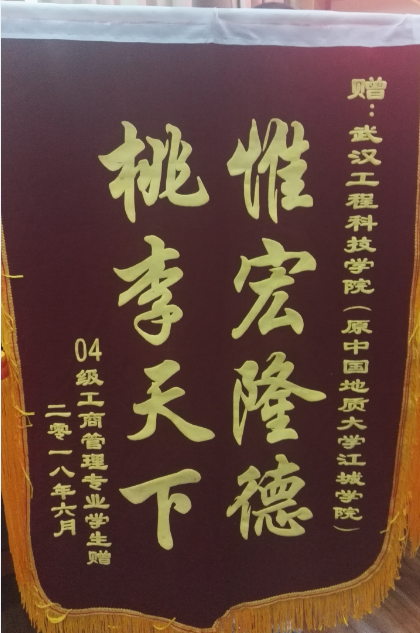 赠：武汉工程科技学院（原中国地质大学江城学院）
惟宏隆德
桃李天下
04级工商管理专业学生赠
二零一八年六月